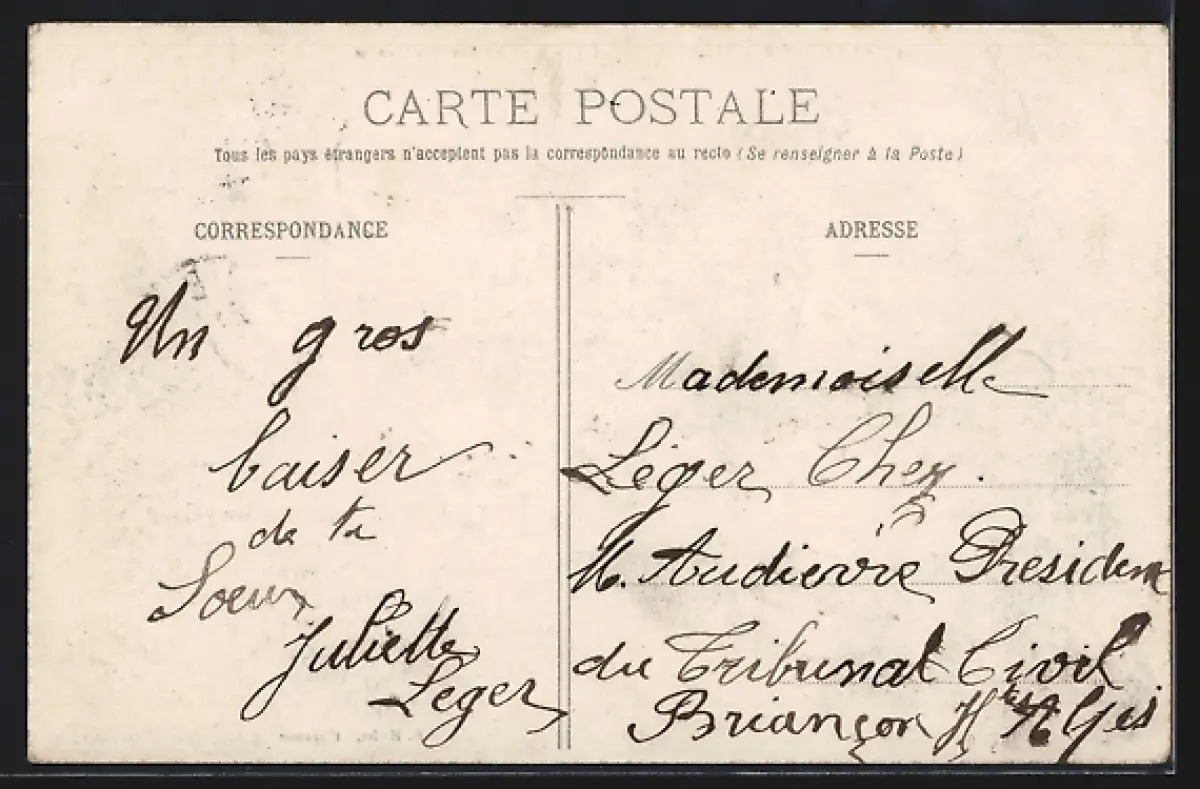 CARTE POSTALE
Tous les pays étrangers n'acceptent pas la correspondance au recto (Se renseigner à la Poste)
CORRESPONDANCE
Un gros
baiser
de ta
Soeur
Juliette
Leger
ADRESSE
Mademoiselle
Léger Chez
M. Audievre President
du Tribunal Civil
Briançon Htes Alpes